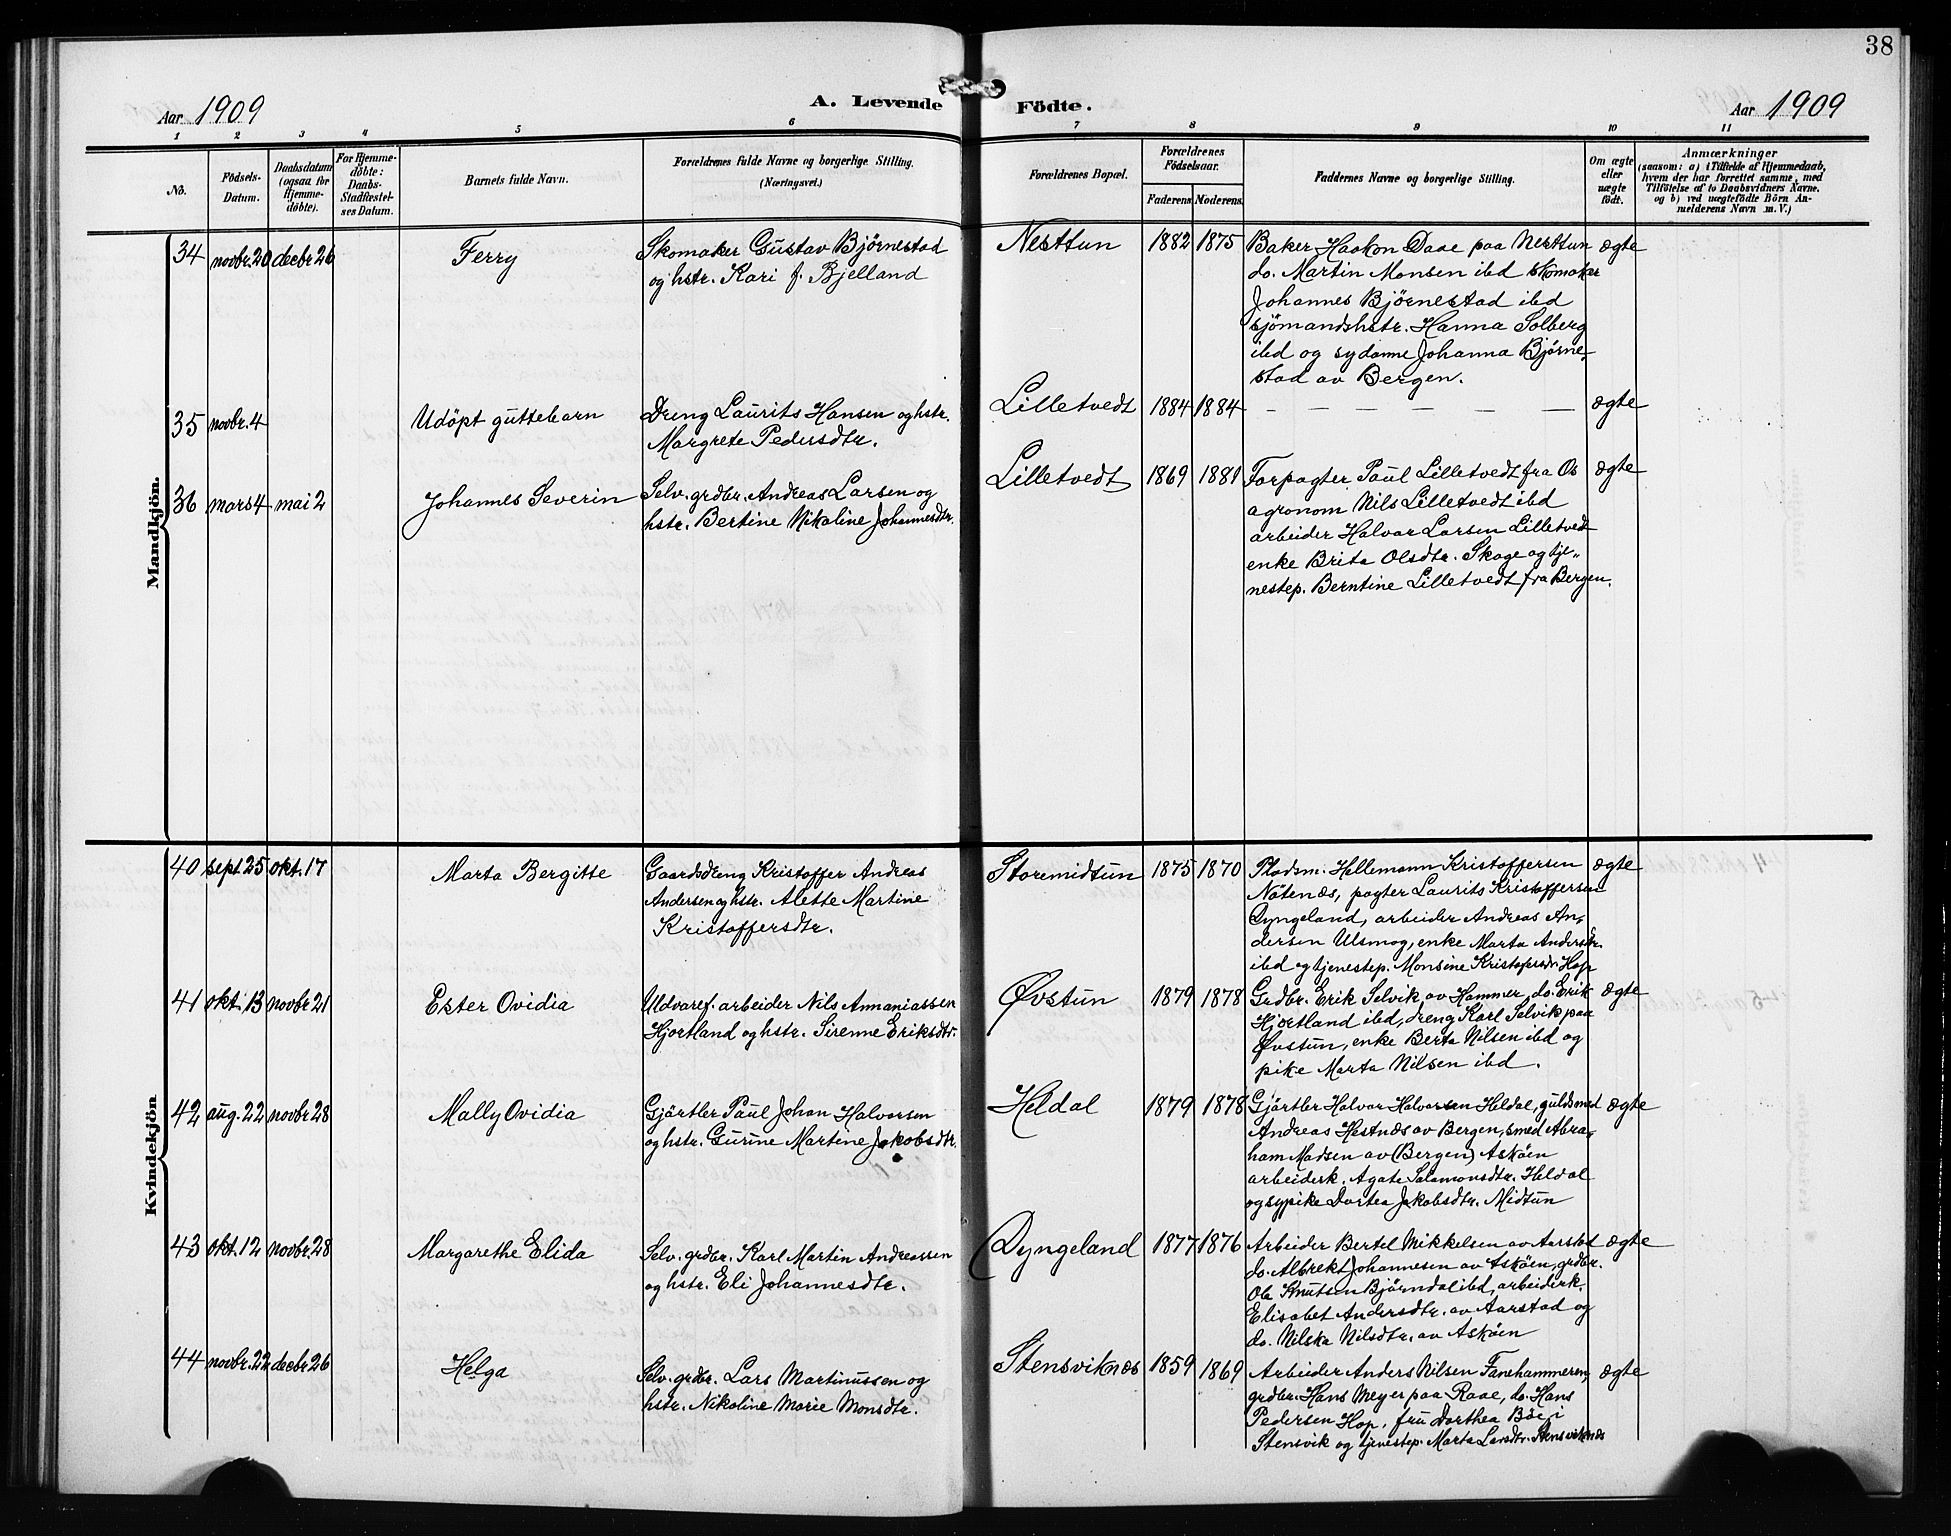 38
Aar 1909
A. Levende Födte.
Aar 1909
1 2 3 4 5 6 7 8 9 10 11
No.
Födsels-
Datum.
Daabsdatum
(ogsaa for
Hjemme-
döbte).
For Hjemme-
döbte:
Daabs-
Stadfæstel-
ses Datum.
Barnets fulde Navn.
Forældrenes fulde Navne og borgerlige Stilling.
(Næringsvei.)
Forældrenes Bopæl.
Forældrenes
Födselsaar.
Faderens. Moderens.
Faddernes Navne og borgerlige Stilling.
Om ægte
eller
uægte
födt.
Anmærkninger
(saasom: a) i Tilfælde af Hjemmedaab,
hvem der har forrettet samme, med
Tilföielse af to Daabsvidners Navne.
og b) ved uægtefödte Börn An-
melderens Navn m. V.)
Mandkjön.
34 novbr. 20 decbr 26
Ferry
Skomaker Gustav Bjørnestad
og hstr. Kari f. Bjelland
Nesttun 1882 1875
Baker Haakon Daae paa Nesttun
do. Martin Monsen ibd skomaker
Johannes Bjørnestad ibd
sjömandshstr. Hanna Solberg
ibd og sydame Johanna Bjørne-
stad av Bergen.
ægte
35 novbr. 4
Udöpt guttebarn
Dreng Laurits Hansen og hstr.
Margrete Pedersdtr.
Lilletvedt 1884 1884 — — — — — — ægte
36 mars 4 mai 2
Johannes Severin
Selv. grdbr. Andreas Larsen og
hstr. Bertine Nikoline Johannesdtr.
Lilletvedt 1869 1881
Forpagter Paul Lilletvedt fra Os
agronom Nils Lilletvedt ibd
arbeider Halvar Larsen Lilletvedt
enke Brita Olsdtr. Skage og tje-
nestep. Berntine Lilletvedt fra Bergen.
ægte
Kvindekjön
40 sept. 25 okt. 17
Marta Bergitte
Gaardsdreng Kristoffer Andreas
Andersen og hstr. Alette Martine
Kristoffersdtr.
Storemidtun 1875 1870
Pladsm. Hellemann Kristoffersen
Nötenæs, pagter Laurits Kristoffersen
Dyngeland, arbeider Andreas An-
dersen Ulsmog, enke Marta Andersdtr.
ibd og tjenestep. Monsine Kristofersdtr Hop
ægte
41 okt. 13 novbr 21
Ester Ovidia
Udvaref. arbeider Nils Annaniassen
Hjortland og hstr. Sirenne Eriksdtr.
Øvstun 1879 1878
Grdbr. Erik Selvik av Hammer, do. Erik
Hjortland ibd, dreng Karl Selvik paa
Øvstun, enke Berta Nilsen ibd og
pike Marta Nilsen ibd.
ægte
42 aug. 22 novbr 28
Mally Ovidia
Gjörtler Paul Johan Halvorsen
og hstr. Gurine Martine Jakobsdtr.
Heldal 1879 1878
Gjörtler Halvor Halvorsen Heldal, guldsmed
Andreas Hestnes av Bergen, smed Abra-
ham Madsen av (Bergen) Asköen
arbeiderk. Agate Salamonsdtr. Heldal
og sypike Dortea Jakobsdtr. Midtun
ægte
43 okt. 12 novbr. 28
Margarethe Elida
Selv. grdbr. Karl Martin Andreassen
og hstr. Eli Johannesdtr.
Dyngeland 1877 1876
Arbeider Bertel Mikkelsen av Aarstad
do. Albrekt Johannesen av Asköen, grdbr.
Ole Knutsen Bjørndal ibd, arbeiderk.
Elisabet Andersdtr. av Aarstad og
do. Nilska Nilsdtr. av Asköen
ægte
44 novbr. 22 decbr 26
Helga
Selv. grdbr. Lars Martinussen og
hstr. Nikoline Marie Monsdtr.
Stensviknæs 1859 1869
Arbeider Anders Nilsen Fanehammeren,
grdbr. Hans Meyer paa Raae, do. Hans
Pedersen Hop, fru Dorthea Böe i
Stensvik og tjenestep. Marta Larsdtr. Stensviknæs
ægte